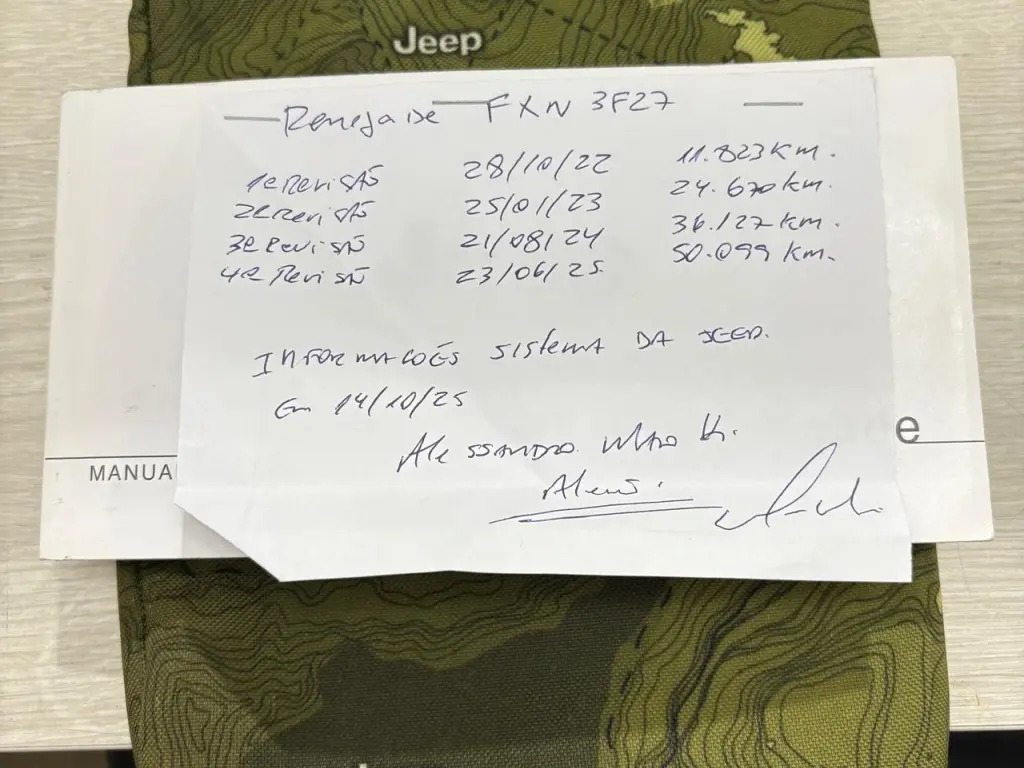 Jeep
Renegade FXN 3F27
1ª Revisão 28/10/22 11.823 km.
2ª Revisão 25/01/23 24.670 km.
3ª Revisão 21/08/24 36.127 km.
4ª Revisão 23/06/25. 50.099 km.
INFORMAÇÕES sistema DA JEEP.
Em 14/10/25
Alessandro
MANUA
e